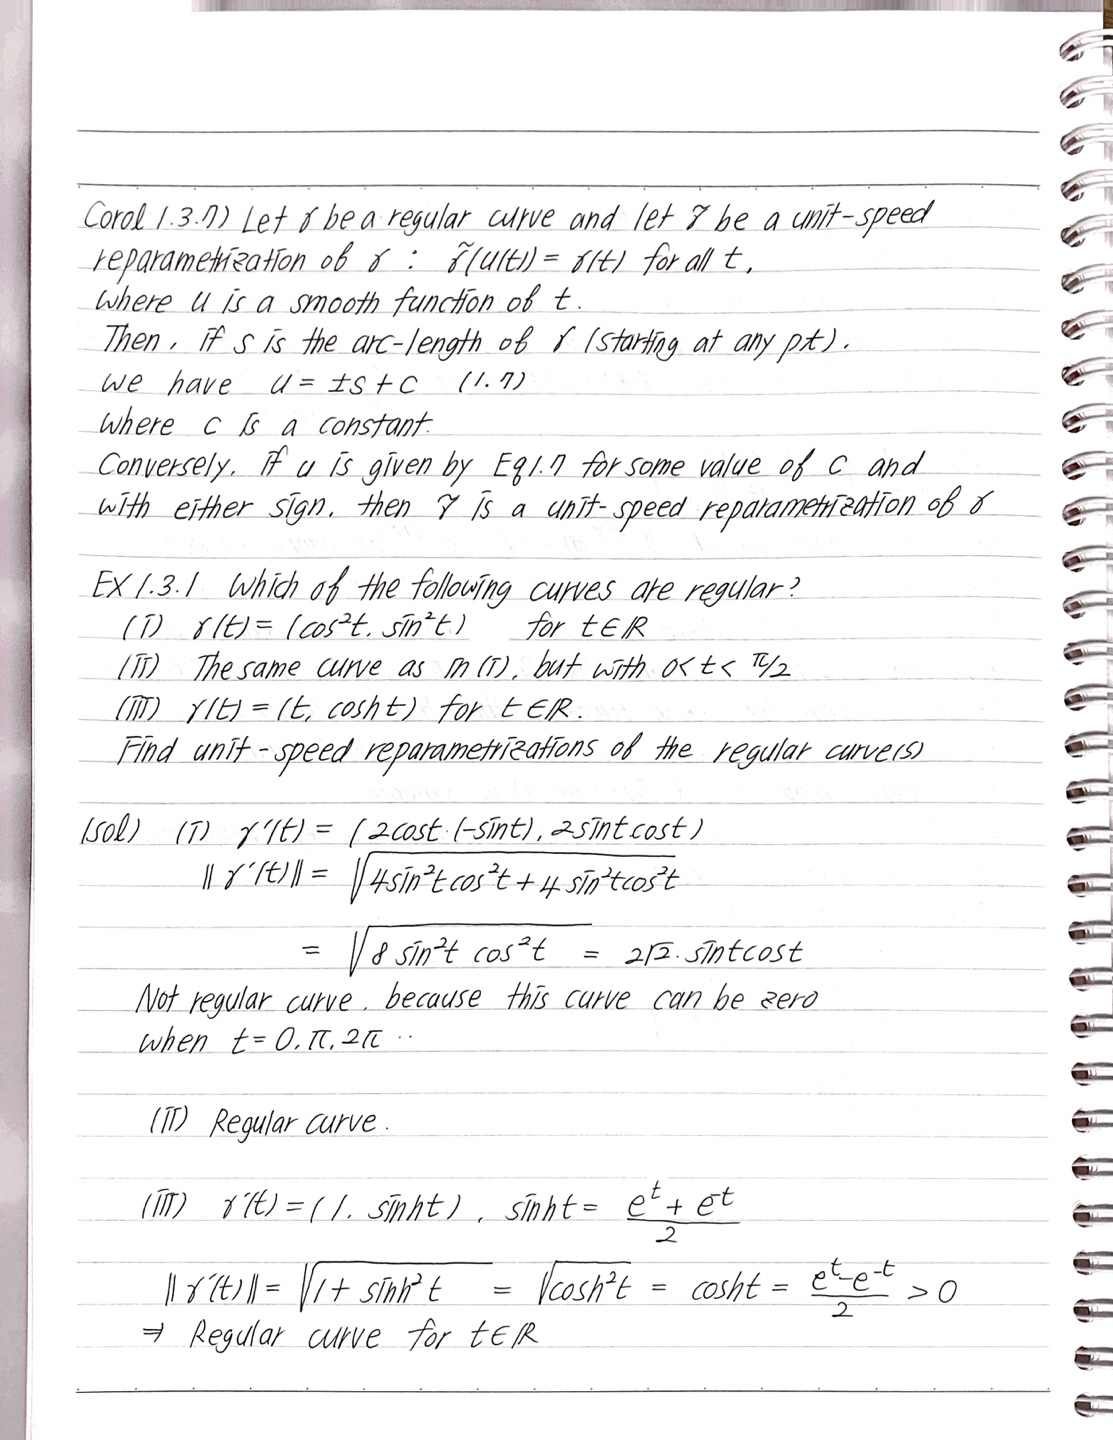 Corol 1.3.7) Let γ be a regular curve and let γ̃ be a unit-speed
reparametrization of γ : γ̃(u(t)) = γ(t) for all t,
where u is a smooth function of t.
Then, if s is the arc-length of γ (starting at any pt).
we have u = ±s + c (1.7)
where c is a constant.
Conversely, if u is given by Eq1.7 for some value of c and
with either sign, then γ̃ is a unit-speed reparametrization of γ
EX 1.3.1 Which of the following curves are regular?
(i) γ(t) = (cos²t, sin²t) for t∈ℝ
(ii) The same curve as in (i), but with 0<t<π/2
(iii) γ(t) = (t, cosht) for t∈ℝ.
Find unit-speed reparametrizations of the regular curve(s)
(sol) (i) γ'(t) = (2cost·(-sint), 2sintcost)
||γ'(t)|| = √(4sin²tcos²t + 4sin²tcos²t)
= √(8 sin²t cos²t) = 2√2·sintcost
Not regular curve, because this curve can be zero
when t = 0, π, 2π ··
(ii) Regular curve.
(iii) γ'(t) = (1, sinht), sinht = (eᵗ + e⁻ᵗ)/2
||γ'(t)|| = √(1 + sinh²t) = √(cosh²t) = cosht = (eᵗ-e⁻ᵗ)/2 > 0
⇒ Regular curve for t∈ℝ